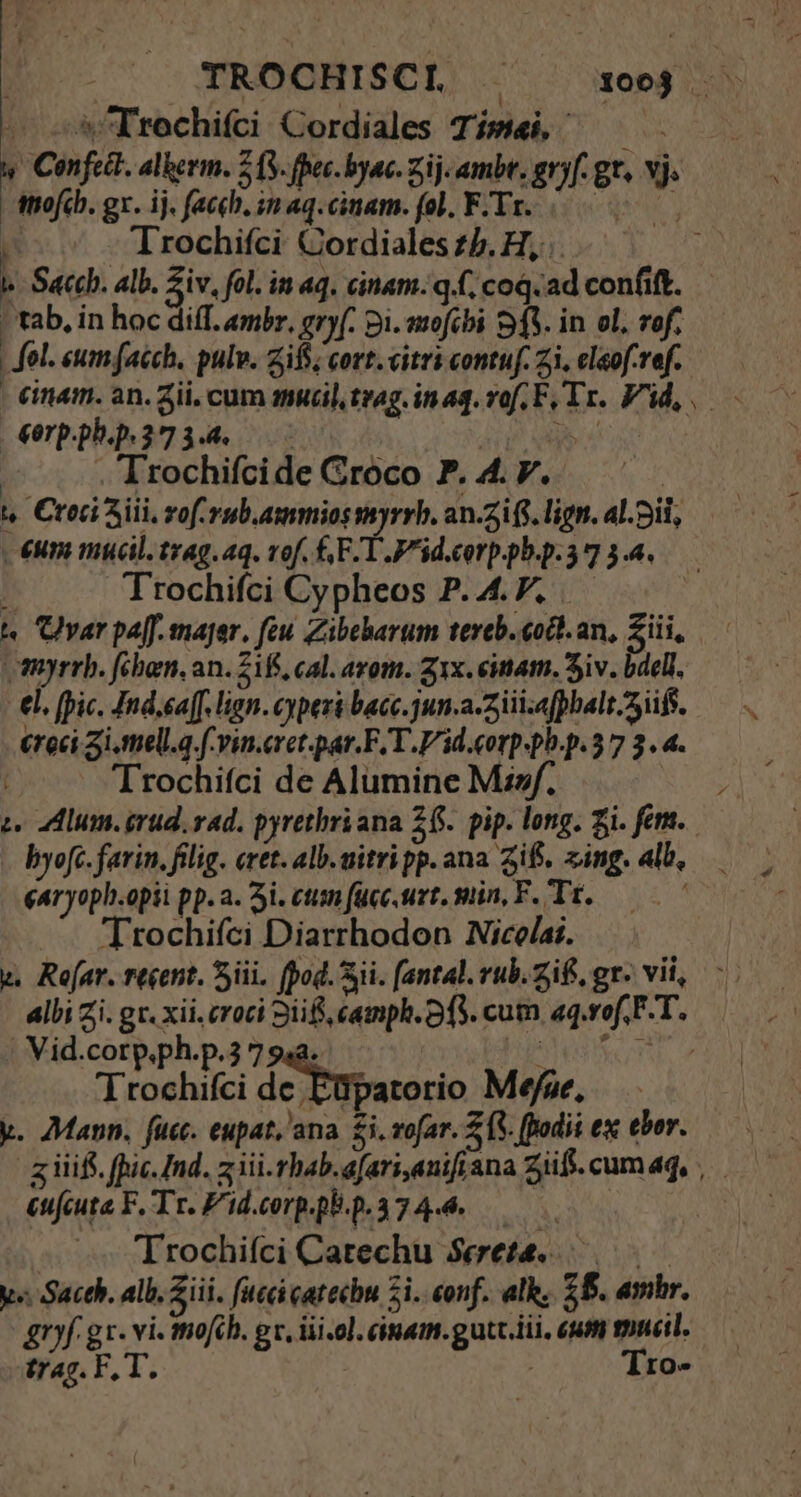 TROCHISCI. 1003
Trochiſci Cordiales Timæi.
Confect. alkerm. ℥ß. ſpec. hyac. ʒij. ambr. gryſ. gr. vj.
moſch. gr. ij. ſacch. in aq. cinam. ſol. F. Tr.
Trochiſci Cordiales th. H.
Sacch. alb. ℥iv. ſol. in aq. cinam. q.ſ. coq. ad conſiſt.
tab. in hoc diſſ. ambr. gryſ. ℈i. moſchi ℈ß. in ol. roſ.
ſol. cum ſacch. pulv. ʒiß. cort. citri contuſ. ʒi. elæoſ. roſ.
cinam. an. ʒii. cum mucil. trag. in aq. roſ. F. Tr. Vid.
corp. ph. p. 373. a.
Trochiſci de Croco P. A. V.
Croci ʒiii. roſ. rub. ammios myrrh. an. ʒiß. lign. al. ℈ii.
cum mucil. trag. aq. roſ. f. F. T. Vid. corp. ph. p. 373. a.
Trochiſci Cypheos P. A. V.
Uvar paſſ. major. ſeu Zibebarum tereb. coct. an. ℥iii.
myrrh. ſchœn. an. ℥iß. cal. arom. ʒıx. cinam. ℥iv. bdell.
el. ſpic. Ind. caſſ. lign. cyperi bacc. jun. a. ʒiii. aſphalt. ʒiiß.
croci ʒi. mell. q. ſ. vin. cret. par. F. T. Vid. corp. ph. p. 373. a.
Trochiſci de Alumine Minſ.
Alum. crud. rad. pyrethri ana ℥ß. pip. long. ʒi. ſem.
hyoſc. farin. ſilig. cret. alb. nitri pp. ana ʒiß. zing. alb.
caryoph. opii pp. a. ʒi. cum ſucc. urt. min. F. Tr.
Trochiſci Diarrhodon Nicolai.
Roſar. recent. ʒiii. ſpod. ʒii. ſantal. rub. ʒiß. gr. vii,
albi ʒi. gr. xii. croci ℈iiß. camph. ℈ß. cum aq. roſ. F. T.
Vid. corp. ph. p. 379. a.
Trochiſci de Eupatorio Meſue.
Mann. ſucc. eupat. ana ℥i. roſar. ℥ß. ſpodii ex ebor.
ʒiiiß. ſpic. Ind. ʒiii. rhab. aſari, aniſi ana ʒiiß. cum aq.
cuſcuta F. Tr. Vid. corp. ph. p. 374. a.
Trochiſci Catechu Screta.
Sacch. alb. ℥iii. ſucci catechu ℥i. conf. alk. ℥ß. ambr.
gryſ. gr. vi. moſch. gr. iii. ol. cinam. gutt. iii. cum mucil.
trag. F. T. Tro-